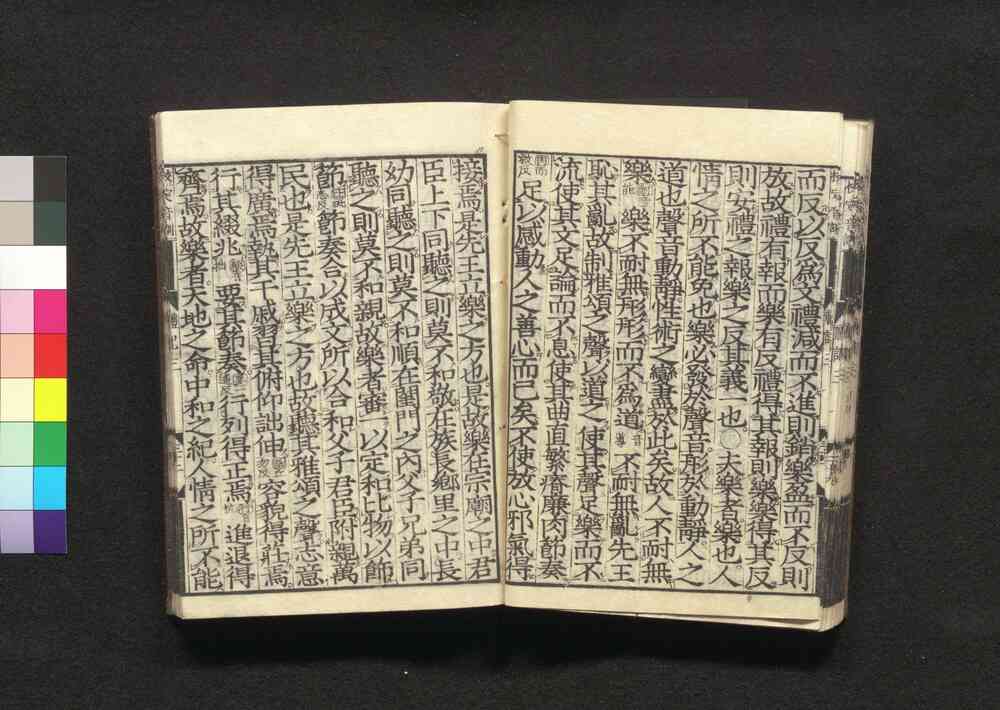 而反以反爲文禮減而不進則銷樂盈而不反則
放故禮有報而樂有反禮得其報則樂樂得其反
則安禮之報樂之反其義一也○夫樂者樂也人
情之所不能免也樂必發於聲音形於動靜人之
道也聲音動靜性術之變盡於此矣故人不耐無
樂能樂不耐無形形而不爲道音導不耐無亂先王
恥其亂故制雅頌之聲以道之使其聲足樂而不
流使其文足論而不息使其曲直繁瘠廉肉節奏
足以感動人之善心而已矣不使放心邪氣得
接焉是先王立樂之方也是故樂在宗廟之中君
臣上下同聽之則莫不和敬在族長鄉里之中長
幼同聽之則莫不和順在閨門之內父子兄弟同
聽之則莫不和親故樂者審一以定和比物以飾
節節奏合以成文所以合和父子君臣附親萬
民也是先王立樂之方也故聽其雅頌之聲志意
得廣焉執其干戚習其俯仰詘伸容貌得莊焉
行其綴兆要其節奏行列得正焉進退得
齊焉故樂者天地之命中和之紀人情之所不能